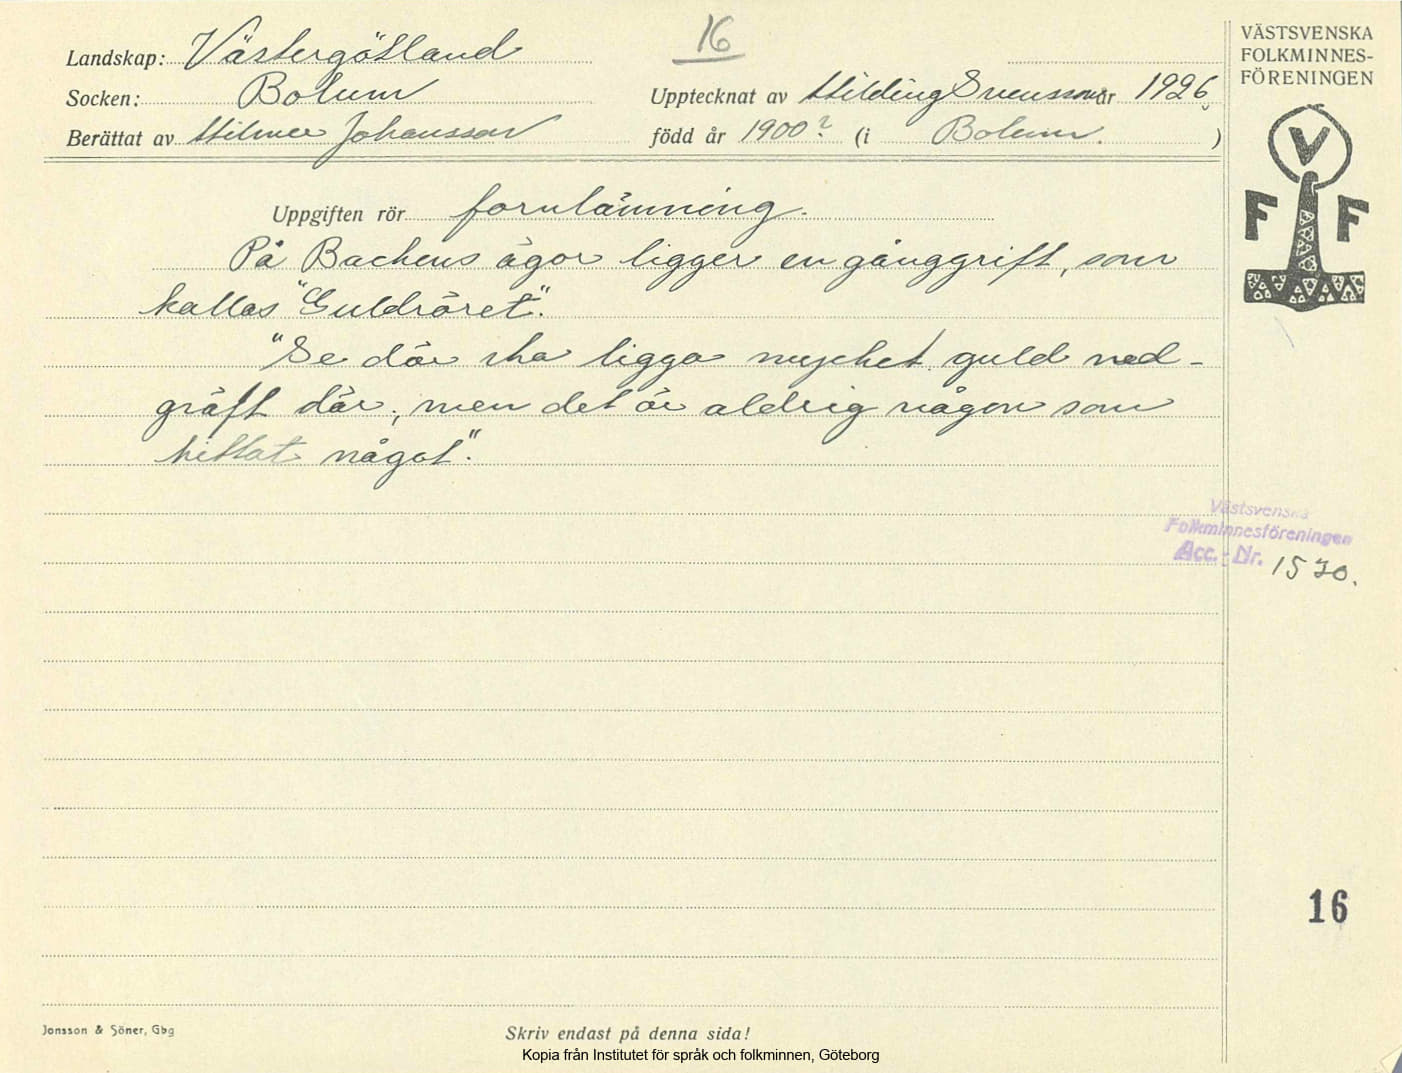 16
VÄSTSVENSKA
FOLKMINNES-
FÖRENINGEN
Landskap: Västergötland
Socken: Bolum
Upptecknat av Hilding Svensson år 1926
Berättat av Hilmer Johansson född år 1900? (i Bolum. )
V
F F
Uppgiften rör fornlämning.
På Backens ägor ligger en gånggrift, som
kallas "Guldröret".
"Se där ska ligga mycket guld ned-
gräft där, men det är aldrig någon som
hittat något".
Västsvenska
Folkminnesföreningen
Acc.-Nr. 1530.
16
Jonsson & Söner, Gbg
Skriv endast på denna sida!
Kopia från Institutet för språk och folkminnen, Göteborg